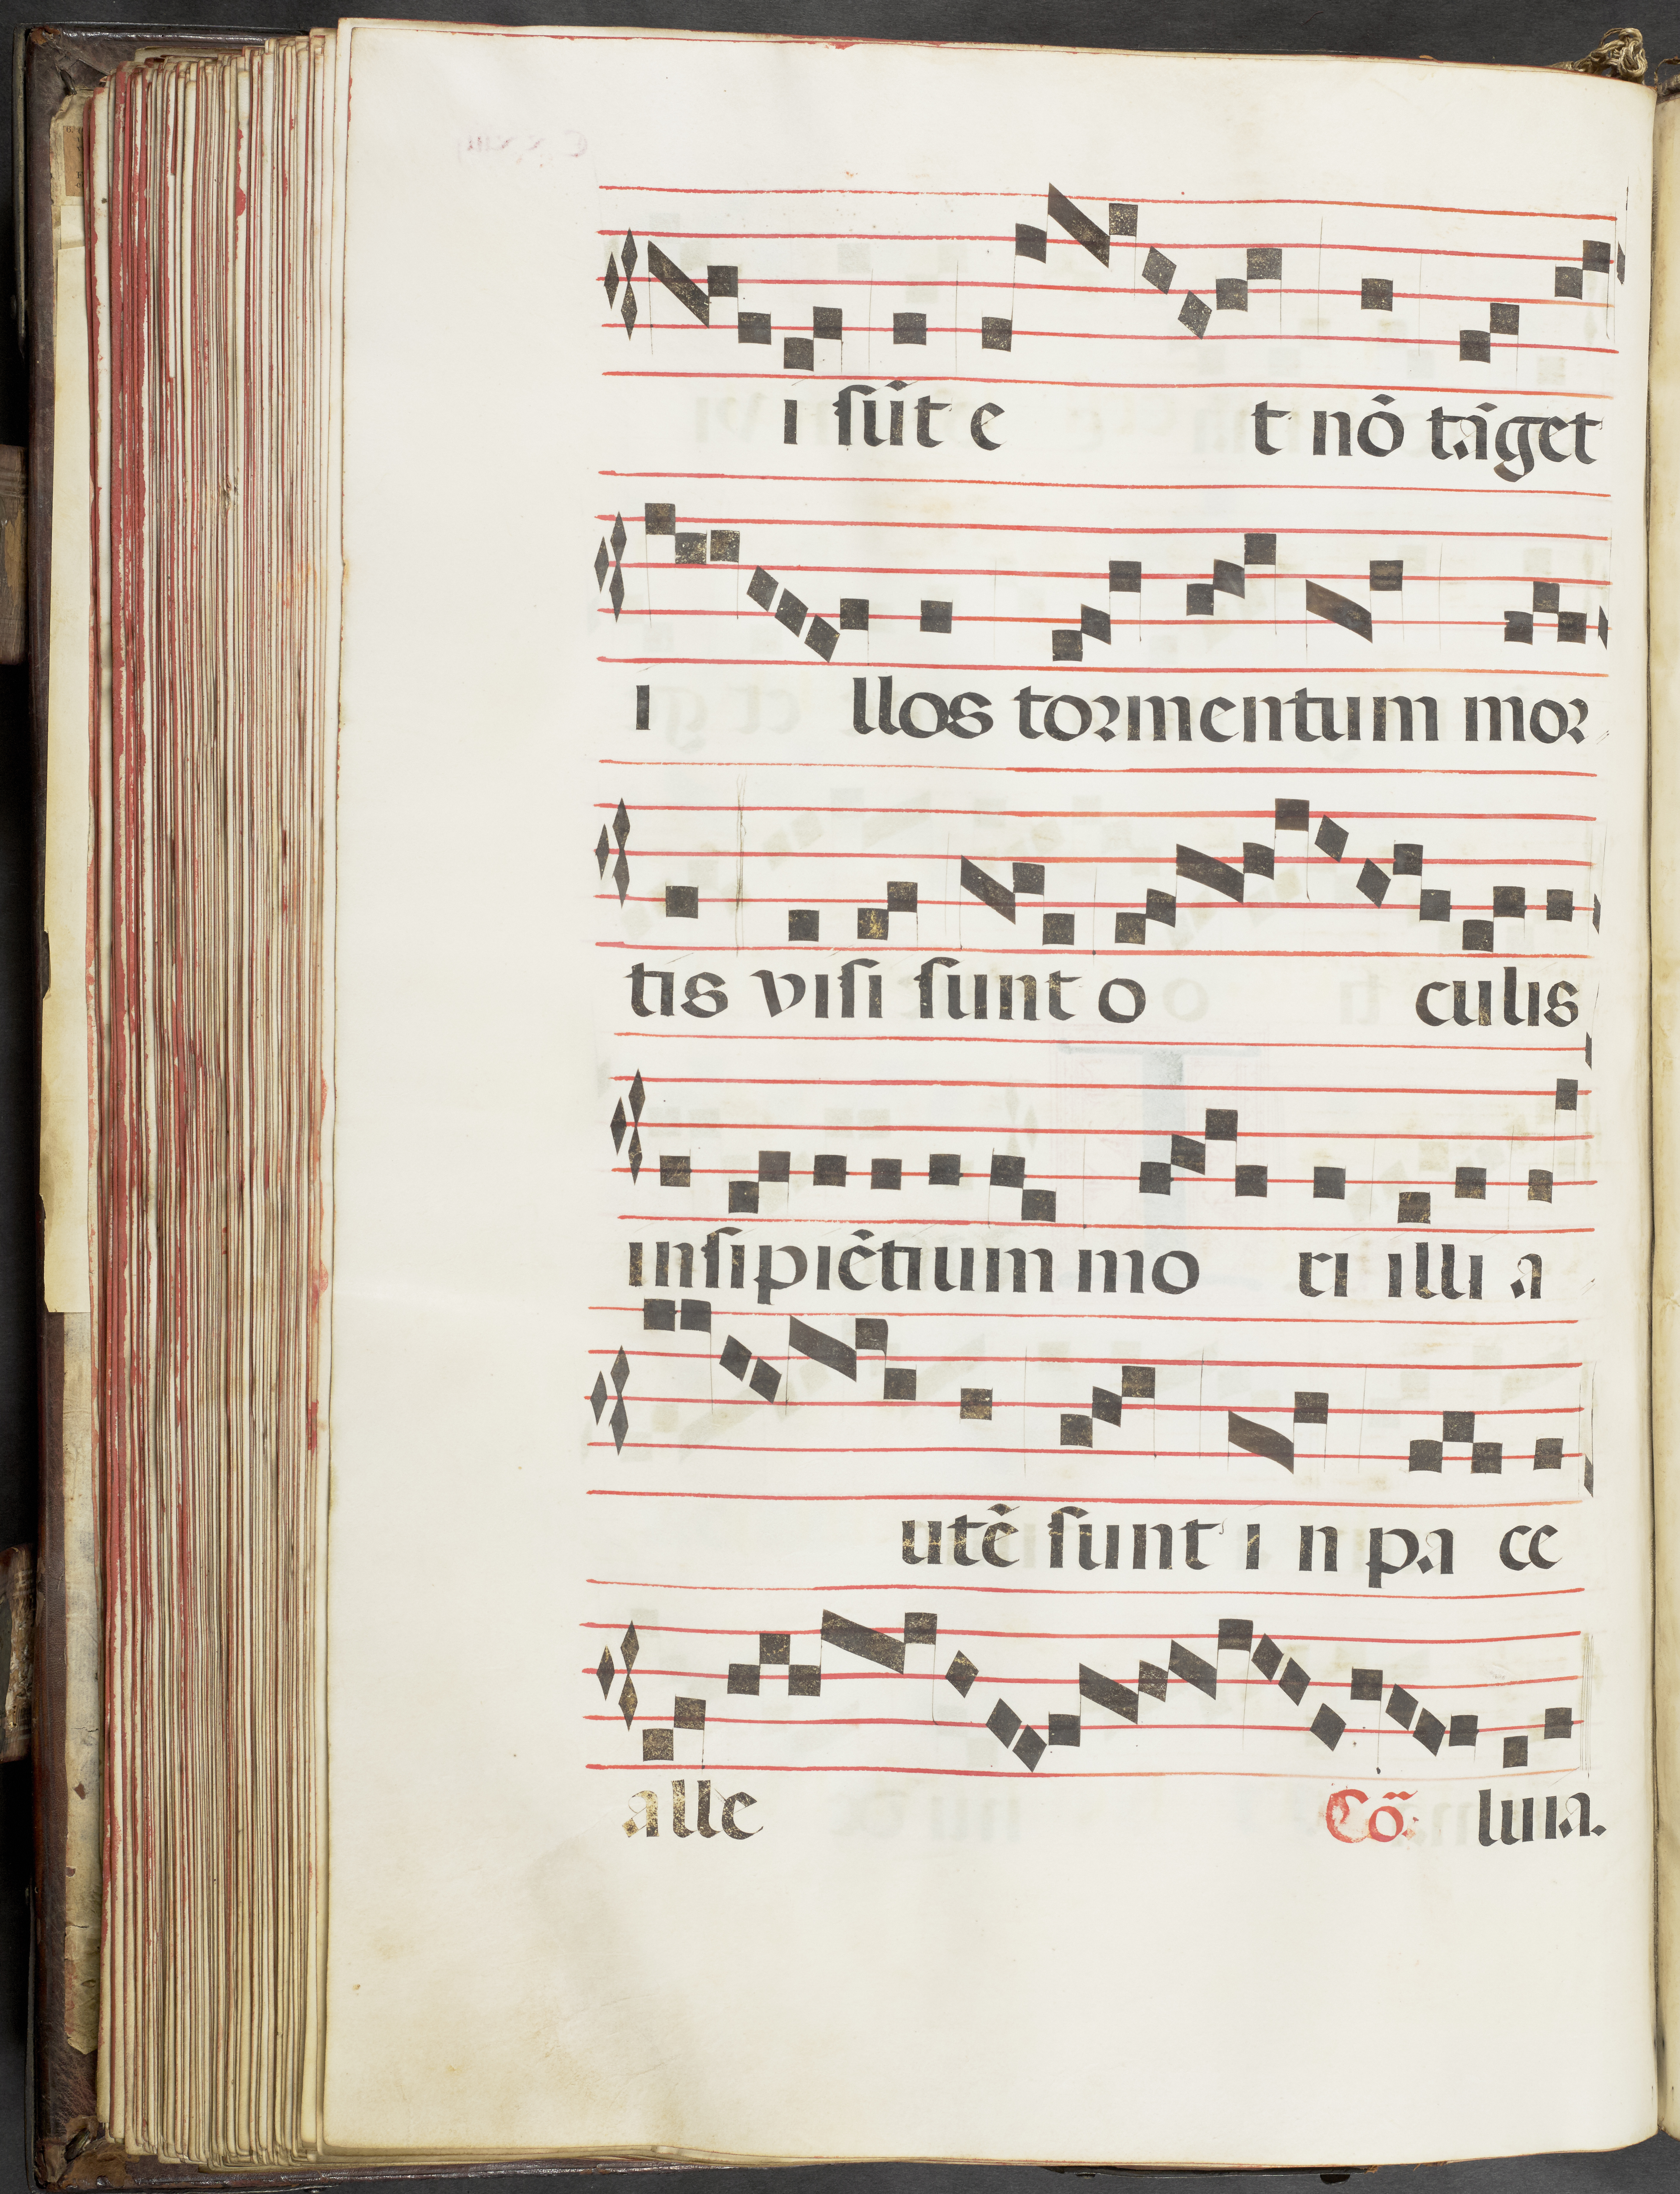 i sũt e t nõ tãget
i llos tormentum mor
tis visi sunt o culis
insipiẽtium mo ri illi a
utẽ sunt i n pa ce
alle Cõ: luia.